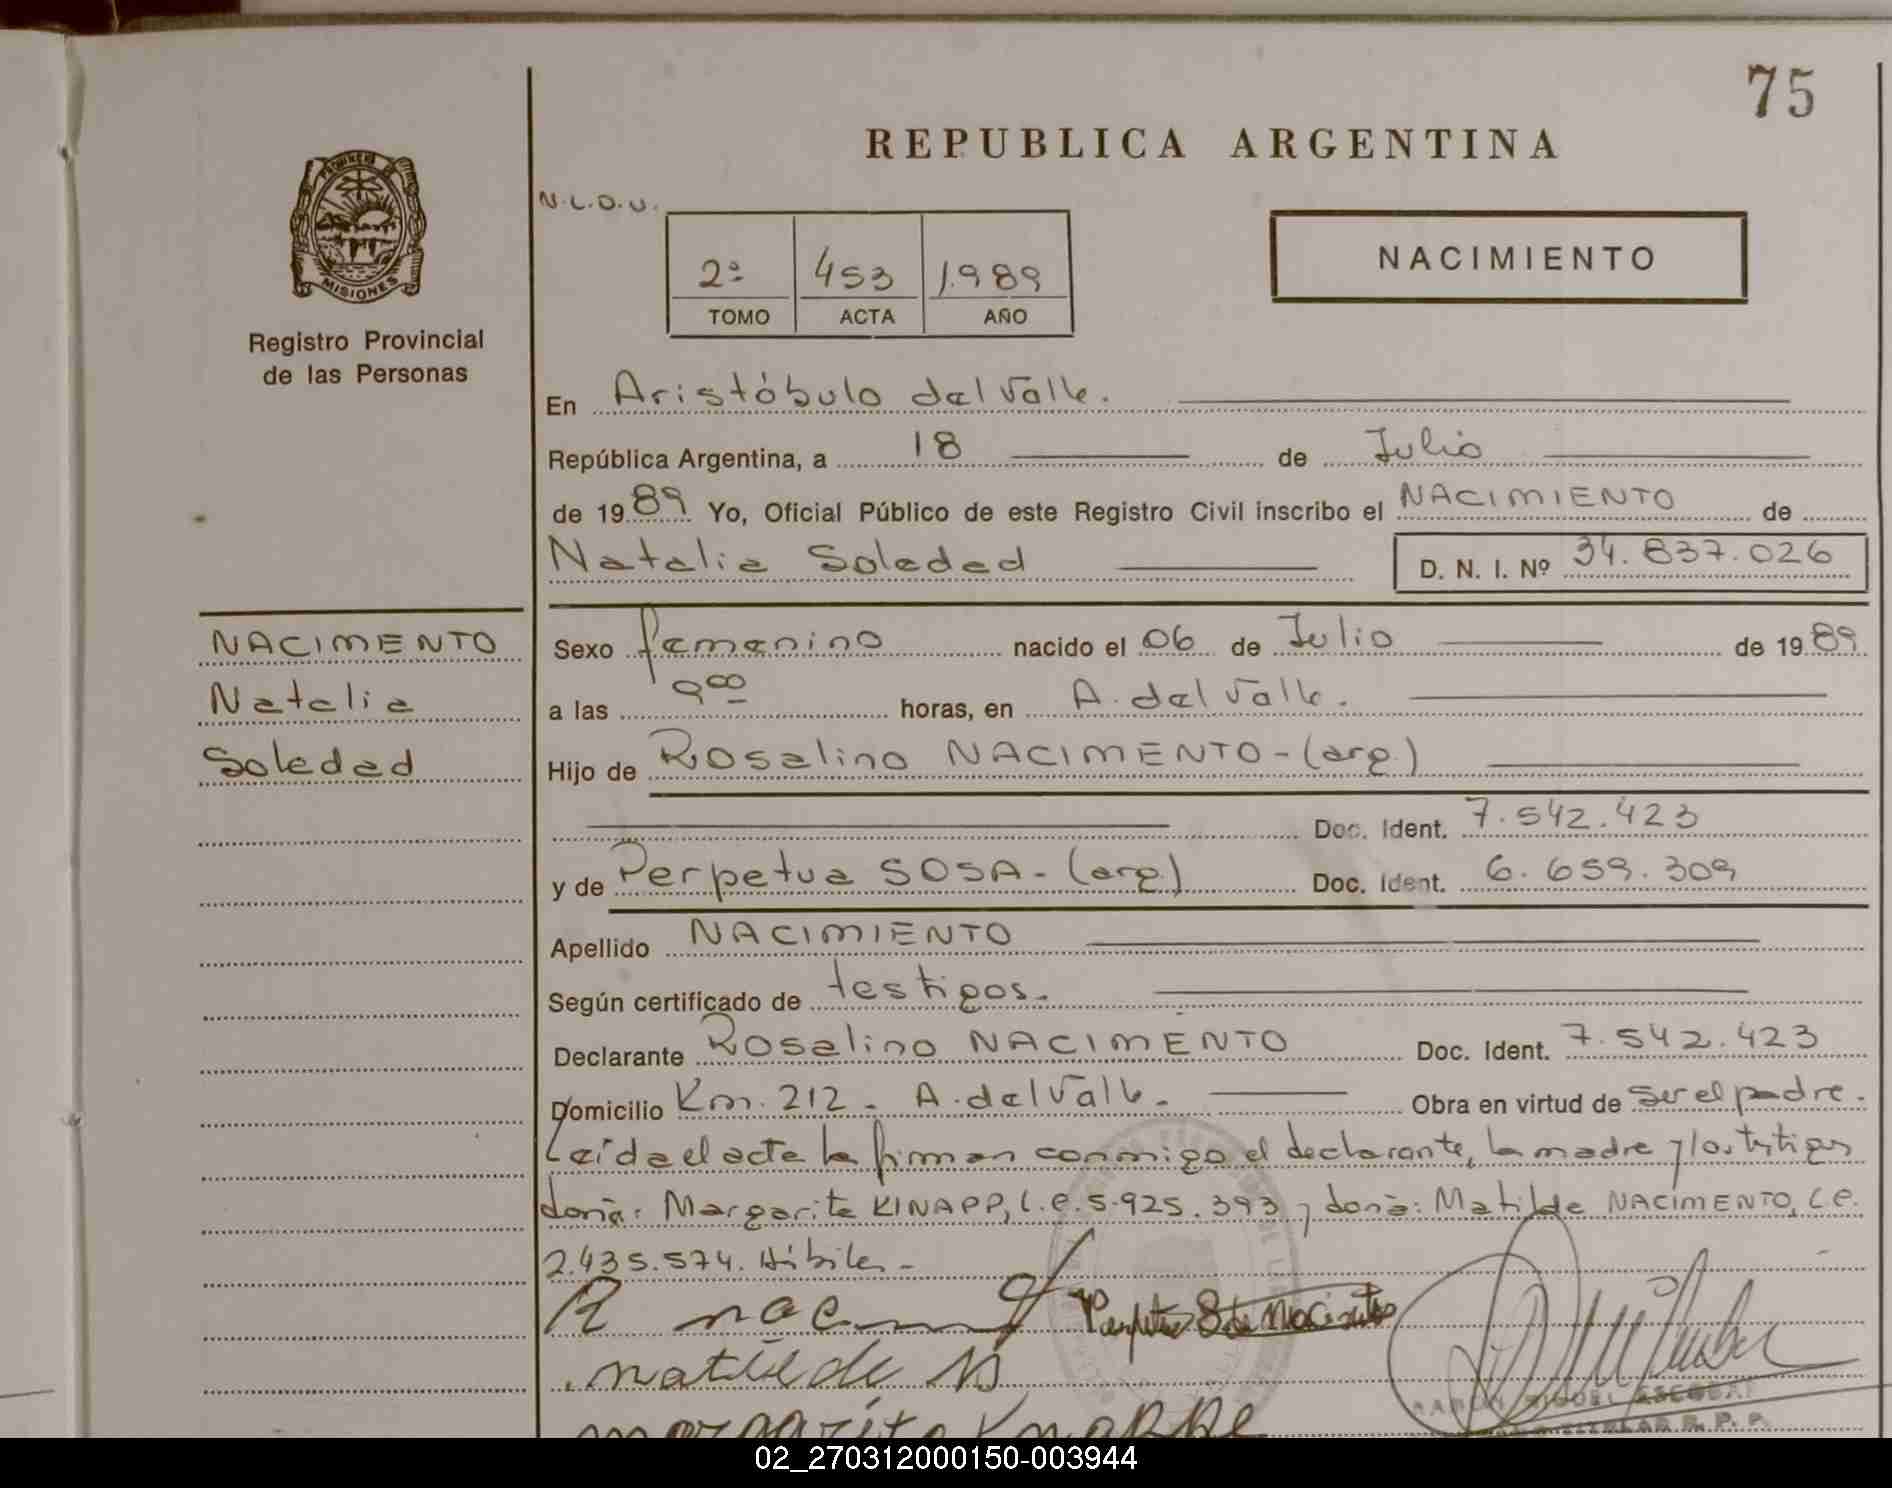 75
REPUBLICA ARGENTINA
PROVINCIA DE
MISIONES
Registro Provincial
de las Personas
N.L.D.U.
2ª 453 1.989
TOMO ACTA AÑO
NACIMIENTO
En Aristóbulo del Valle.
República Argentina, a 18 de Julio
de 1989 Yo, Oficial Público de este Registro Civil inscribo el NACIMIENTO de
Natalia Soledad D. N. I. Nº 34.837.026
NACIMENTO
Natalia
Soledad
Sexo femenino nacido el 06 de Julio de 1989
a las 9 00 horas, en A. del Valle.
Hijo de Rosalino NACIMENTO-(arg.)
Doc. Ident. 7.542.423
y de Perpetua SOSA-(arg.) Doc. Ident. 6.659.309
Apellido NACIMIENTO
Según certificado de testigos.
Declarante Rosalino NACIMENTO Doc. Ident. 7.542.423
Domicilio Km. 212 - A. del Valle. Obra en virtud de ser el padre.
Leída el acta la firman conmigo el declarante, la madre y los testigos
doña: Margarita KINAPP, L.C. 5.925.393 y doña: Matilde NACIMENTO, L.C.
2.435.574. Hábiles-
R nacim
Perpetua S de Nacimento
matilde N
margarita Knappe
RAMON MIGUEL ESCOBAR
TITULAR R. P. P.
02_270312000150-003944